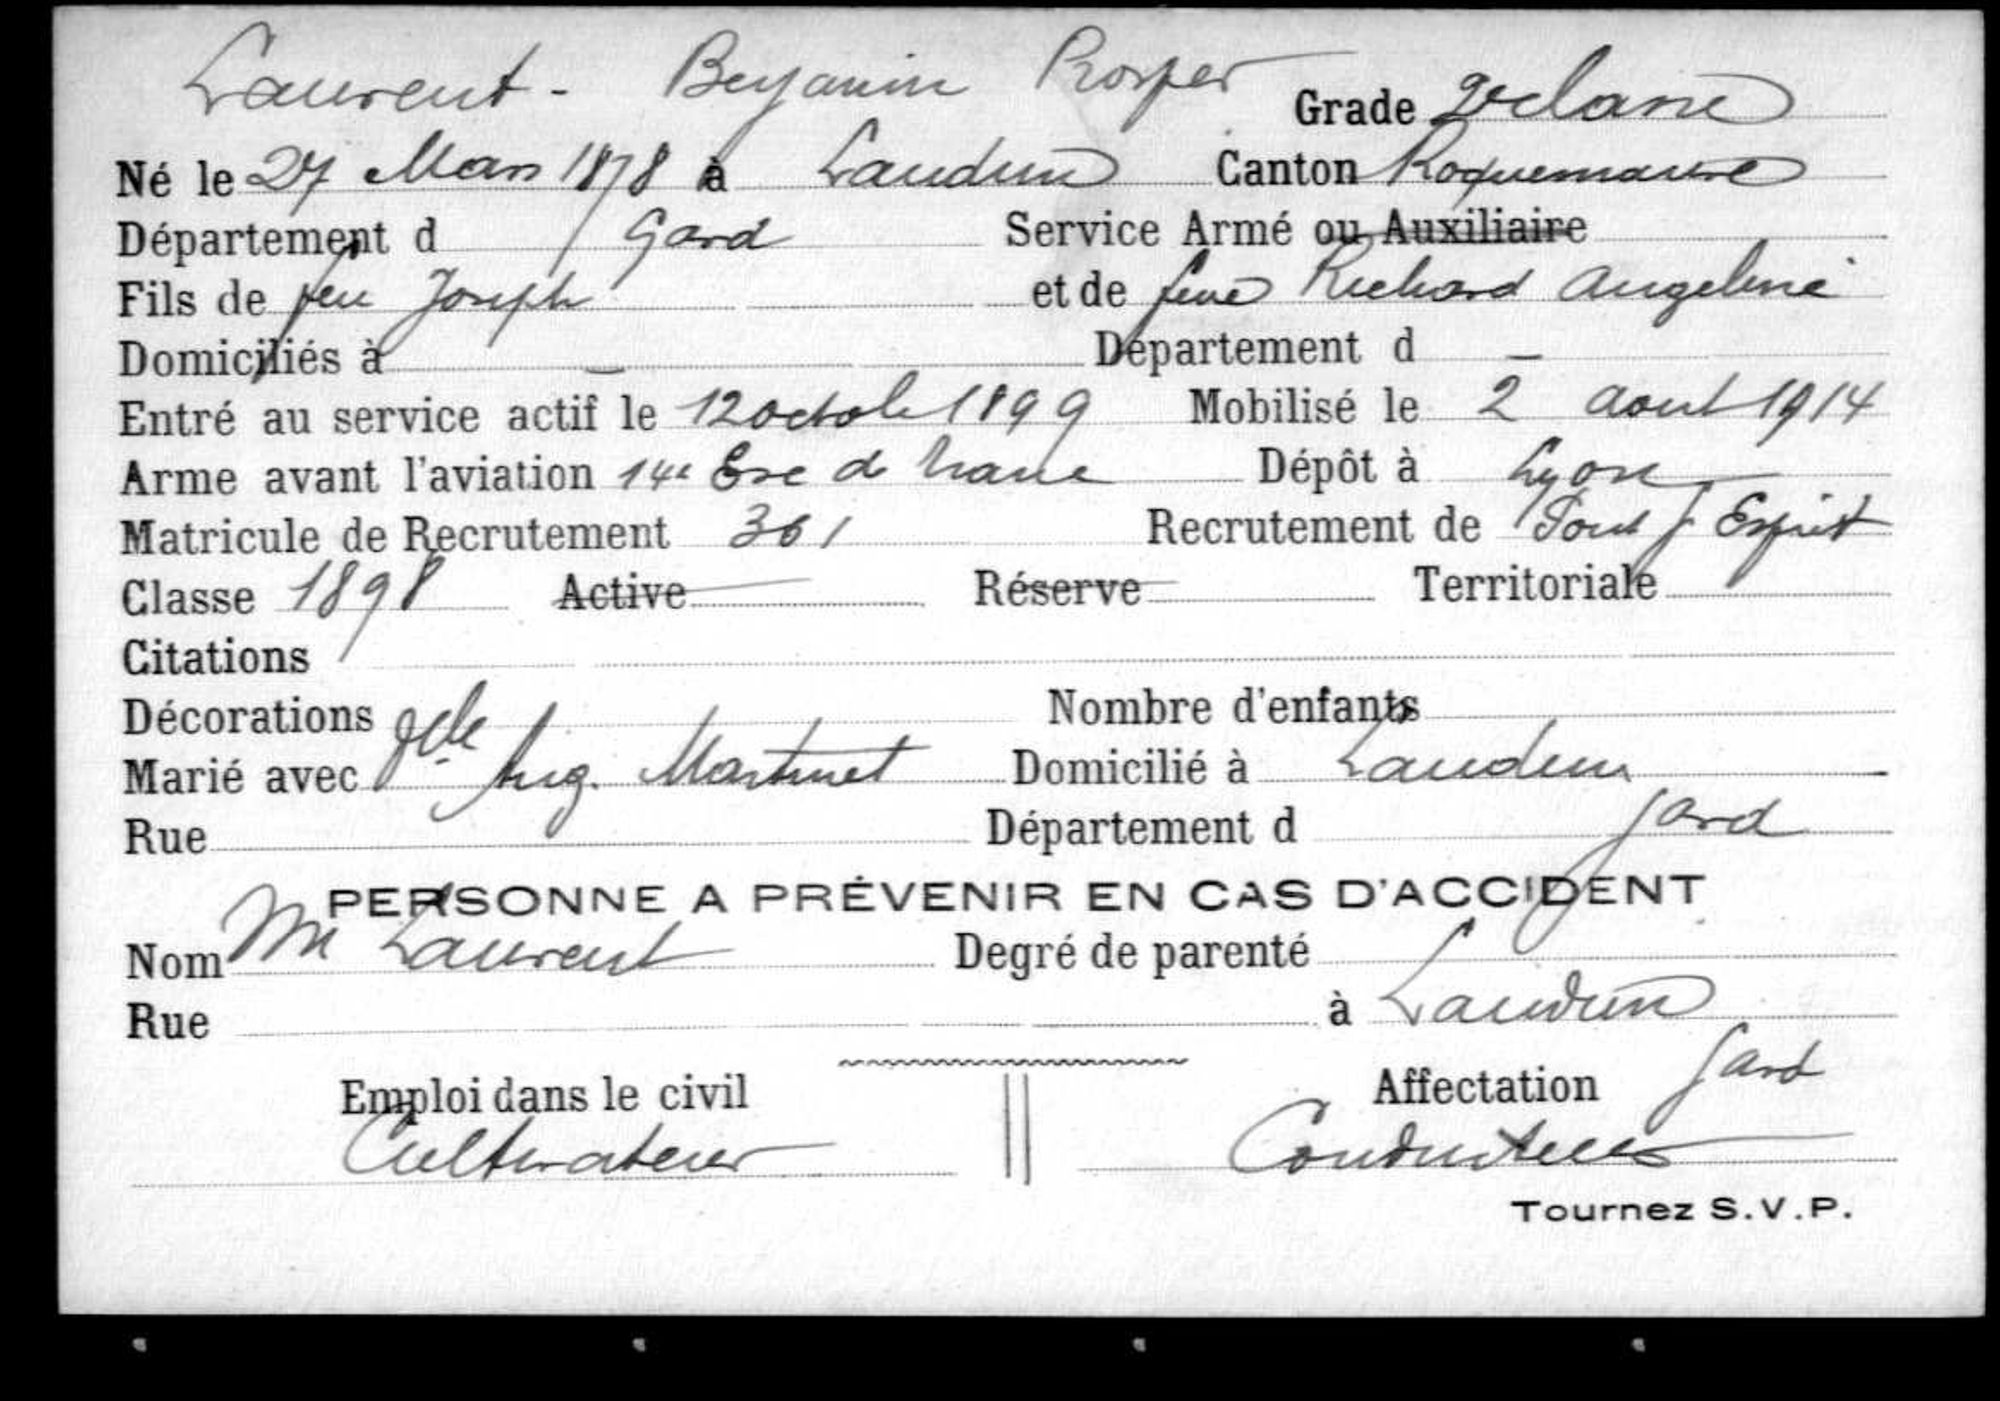 Laurent - Benjamin Prosper Grade 2e classe
Né le 27 Mars 1878 à Laudun Canton Roquemaure
Département d Gard Service Armé ou Auxiliaire
Fils de feu Joseph et de feue Richard Angeline
Domiciliés à — Département d —
Entré au service actif le 12 octobre 1899 Mobilisé le 2 aout 1914
Arme avant l'aviation 14e Esc de Dépôt à Lyon
Matricule de Recrutement 361 Recrutement de Pont St Esprit
Classe 1898 Active Réserve Territoriale
Citations
Décorations Nombre d'enfants
Marié avec Aug. Martinet Domicilié à Laudun
Rue Département d Gard
PERSONNE A PRÉVENIR EN CAS D'ACCIDENT
Nom Laurent Degré de parenté
Rue à Laudun
Gard
Emploi dans le civil Affectation
Cultivateur Conducteur
Tournez S.V.P.